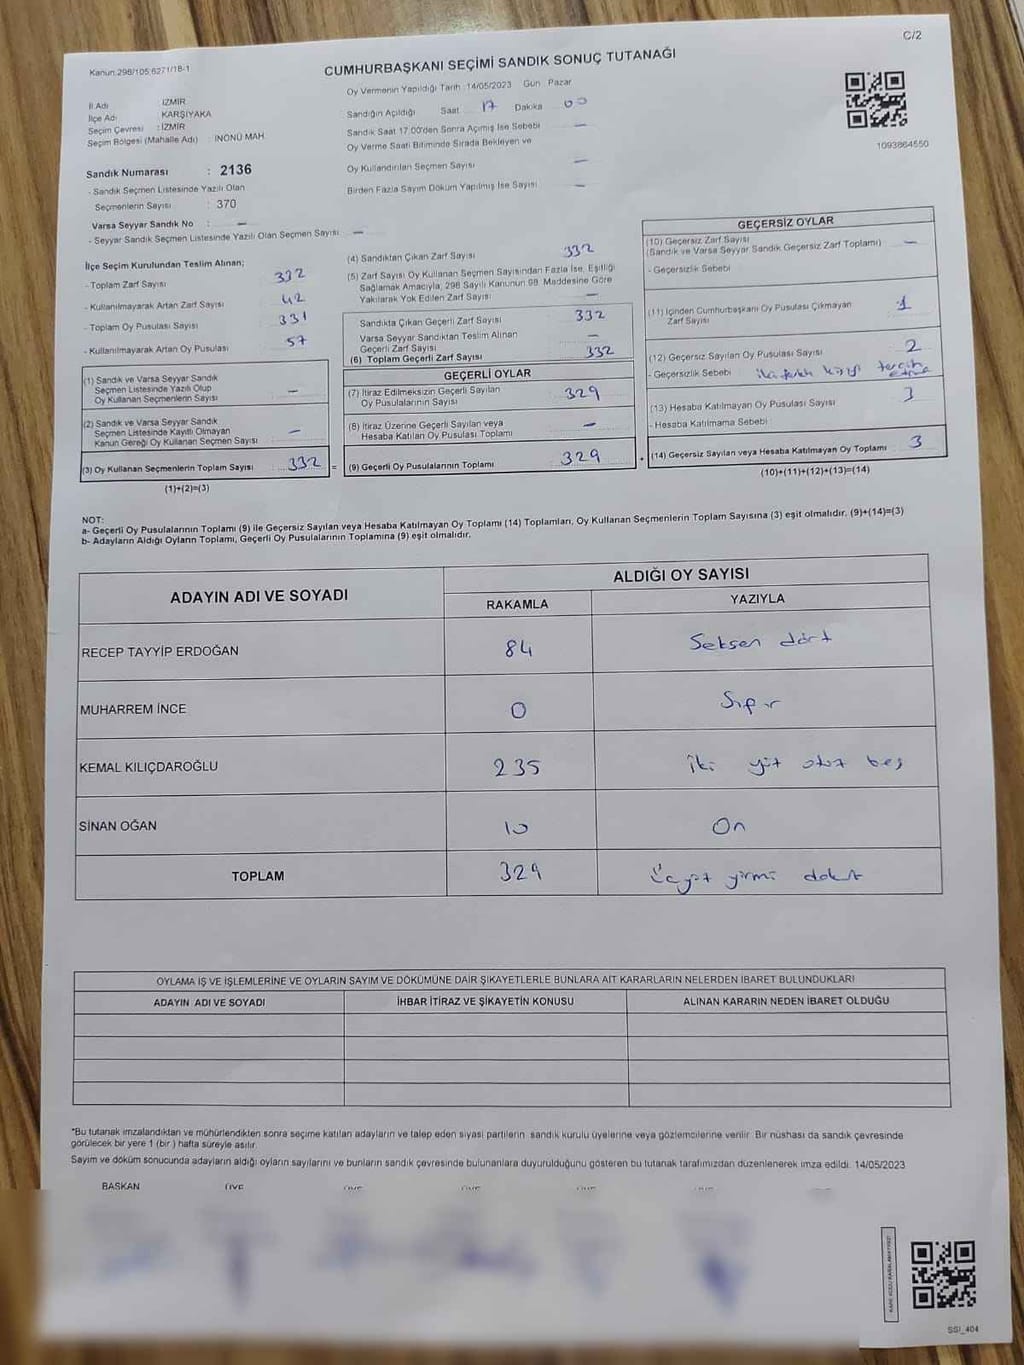 C/2
Kanun:298/105;6271/18-1
CUMHURBAŞKANI SEÇİMİ SANDIK SONUÇ TUTANAĞI
İl Adı : İZMİR
İlçe Adı : KARŞIYAKA
Seçim Çevresi : İZMİR
Seçim Bölgesi (Mahalle Adı) : İNÖNÜ MAH.
Sandık Numarası : 2136
- Sandık Seçmen Listesinde Yazılı Olan
Seçmenlerin Sayısı : 370
Varsa Seyyar Sandık No : —
- Seyyar Sandık Seçmen Listesinde Yazılı Olan Seçmen Sayısı : —
Oy Vermenin Yapıldığı Tarih :14/05/2023 Gün : Pazar
Sandığın Açıldığı Saat 17 Dakika 00
Sandık Saat 17.00'den Sonra Açımış İse Sebebi —
Oy Verme Saati Bitiminde Sırada Bekleyen ve
Oy Kullandırılan Seçmen Sayısı —
Birden Fazla Sayım Döküm Yapılmış İse Sayısı —
1093864550
İlçe Seçim Kurulundan Teslim Alınan;
- Toplam Zarf Sayısı 332
- Kullanılmayarak Artan Zarf Sayısı 42
- Toplam Oy Pusulası Sayısı 331
- Kullanılmayarak Artan Oy Pusulası 57
(1) Sandık ve Varsa Seyyar Sandık
Seçmen Listesinde Yazılı Olup
Oy Kullanan Seçmenlerin Sayısı —
(2) Sandık ve Varsa Seyyar Sandık
Seçmen Listesinde Kayıtlı Olmayan
Kanun Gereği Oy Kullanan Seçmen Sayısı —
(3) Oy Kullanan Seçmenlerin Toplam Sayısı 332 =
(1)+(2)=(3)
(4) Sandıktan Çıkan Zarf Sayısı 332
(5) Zarf Sayısı Oy Kullanan Seçmen Sayısından Fazla İse, Eşitliği
Sağlamak Amacıyla, 298 Sayılı Kanunun 98. Maddesine Göre
Yakılarak Yok Edilen Zarf Sayısı —
Sandıkta Çıkan Geçerli Zarf Sayısı 332
Varsa Seyyar Sandıktan Teslim Alınan
Geçerli Zarf Sayısı —
(6) Toplam Geçerli Zarf Sayısı 332
GEÇERLİ OYLAR
(7) İtiraz Edilmeksizin Geçerli Sayılan
Oy Pusulalarının Sayısı 329
(8) İtiraz Üzerine Geçerli Sayılan veya
Hesaba Katılan Oy Pusulası Toplamı —
(9) Geçerli Oy Pusulalarının Toplamı 329 +
GEÇERSİZ OYLAR
(10) Geçersiz Zarf Sayısı
(Sandık ve Varsa Seyyar Sandık Geçersiz Zarf Toplamı) —
- Geçersizlik Sebebi
(11) İçinden Cumhurbaşkanı Oy Pusulası Çıkmayan
Zarf Sayısı 1
(12) Geçersiz Sayılan Oy Pusulası Sayısı 2
- Geçersizlik Sebebi iki farklı kişiyi tercih etme
(13) Hesaba Katılmayan Oy Pusulası Sayısı 3
- Hesaba Katılmama Sebebi
(14) Geçersiz Sayılan veya Hesaba Katılmayan Oy Toplamı 3
(10)+(11)+(12)+(13)=(14)
NOT:
a- Geçerli Oy Pusulalarının Toplamı (9) ile Geçersiz Sayılan veya Hesaba Katılmayan Oy Toplamı (14) Toplamları, Oy Kullanan Seçmenlerin Toplam Sayısına (3) eşit olmalıdır. (9)+(14)=(3)
b- Adayların Aldığı Oyların Toplamı, Geçerli Oy Pusulalarının Toplamına (9) eşit olmalıdır.
ADAYIN ADI VE SOYADI ALDIĞI OY SAYISI
RAKAMLA YAZIYLA
RECEP TAYYİP ERDOĞAN 84 Seksen dört
MUHARREM İNCE 0 Sıfır
KEMAL KILIÇDAROĞLU 235 iki yüz otuz beş
SİNAN OĞAN 10 On
TOPLAM 329 Üçyüz yirmi dokuz
OYLAMA İŞ VE İŞLEMLERİNE VE OYLARIN SAYIM VE DÖKÜMÜNE DAİR ŞİKAYETLERLE BUNLARA AİT KARARLARIN NELERDEN İBARET BULUNDUKLARI
ADAYIN ADI VE SOYADI İHBAR İTİRAZ VE ŞİKAYETİN KONUSU ALINAN KARARIN NEDEN İBARET OLDUĞU
*Bu tutanak imzalandıktan ve mühürlendikten sonra seçime katılan adayların ve talep eden siyasi partilerin sandık kurulu üyelerine veya gözlemcilerine verilir. Bir nüshası da sandık çevresinde
görülecek bir yere 1 (bir ) hafta süreyle asılır.
Sayım ve döküm sonucunda adayların aldığı oyların sayılarını ve bunların sandık çevresinde bulunanlara duyurulduğunu gösteren bu tutanak tarafımızdan düzenlenerek imza edildi. 14/05/2023
BAŞKAN ÜYE ÜYE ÜYE ÜYE ÜYE
SSI_404